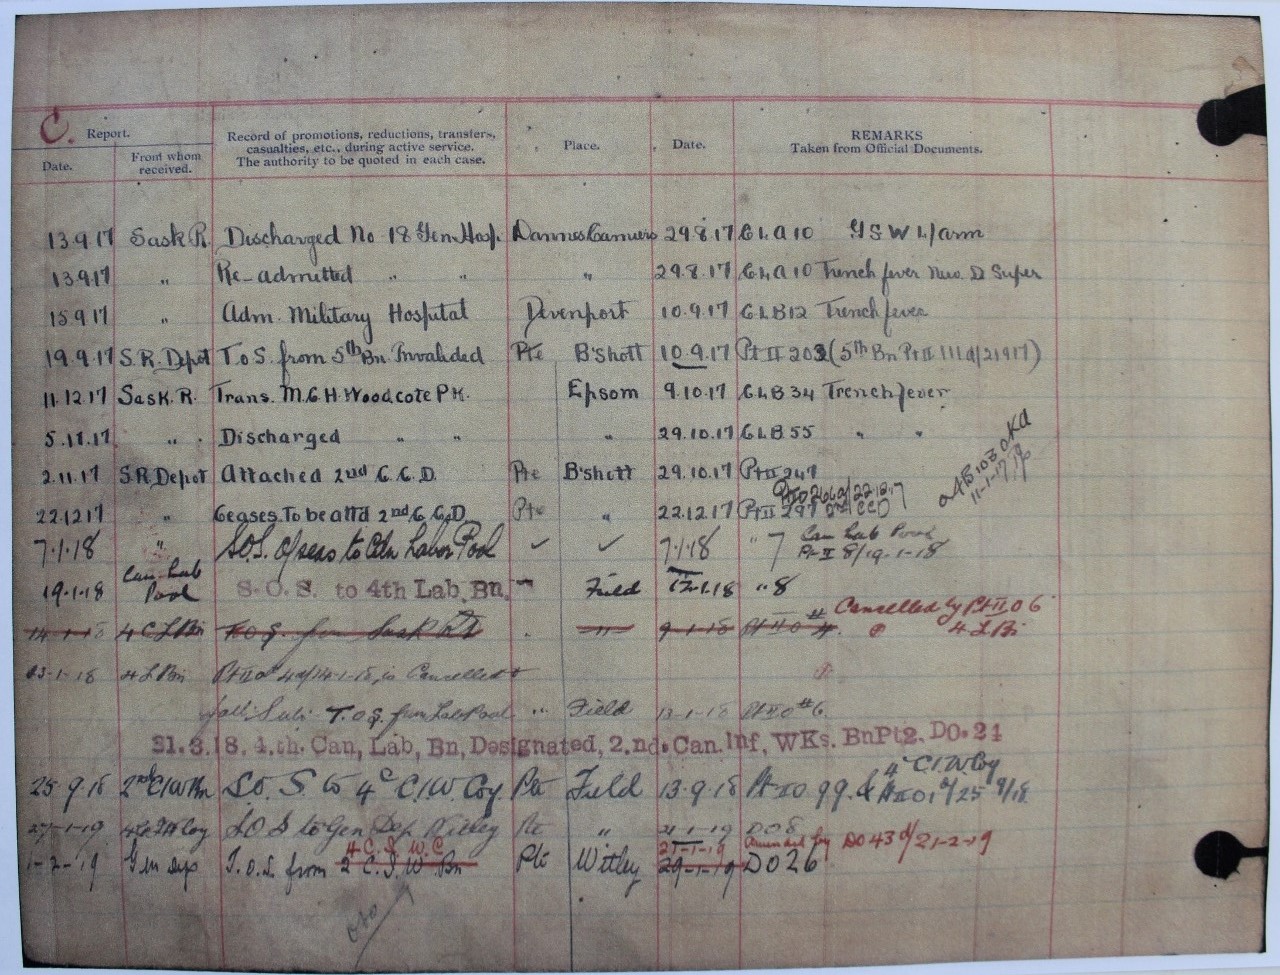 C. Report.
Date. From whom received.
Record of promotions, reductions, transfers, casualties, etc., during active service. The authority to be quoted in each case.
Place.
Date.
REMARKS Taken from Official Documents.
13.9.17 Sask R. Discharged No 18 Gen. Hosp. Dannes Camiers 29.8.17 CLA10 G S W L/arm
13.9.17 " Re-admitted " " " 29.8.17 CLA10 Trench fever D Super
15.9.17 " Adm. Military Hospital Devenport 10.9.17 CLB12 Trench fever
19.9.17 S.R. Depot T.o.S. from 5th Bn. Invalided Pte B'shott 10.9.17 Pt II 203 (5th Bn Pt II 111 d/21917)
11.12.17 Sask. R. Trans. M.C.H. Woodcote PK. Epsom 9.10.17 CLB34 Trench fever
5.11.17 " Discharged " " " 29.10.17 CLB55 " "
2.11.17 S.R. Depot Attached 2nd C.C.D. Pte B'shott 29.10.17 Pt II 247
11-1-17
22.12.17 " Ceases To be attd 2nd C.C.D. Pte " 22.12.17 Pt II 297 2nd CCD
7.1.18 " S.O.S. O/seas to Cdn Labor Pool ✓ ✓ 7.1.18 " 7 Can Lab Pool
Pt II 8/19-1-18
19.1.18 Can Lab Pool S.O.S. to 4th Lab, Bn, " Field 12.1.18 " 8
Cancelled by Pt II O 6
14-1-18 4 C L Bn T.O.S. from Sask " 9-1-18 Pt II O # 4. 4 L Bn
23-1-18 4 L Bn Pt II O 4 d/14-1-18, is Cancelled &
T.O.S. from Lab Pool " Field 13-1-18 Pt II O #6.
21.3.18. 4.th. Can, Lab, Bn, Designated, 2.nd. Can. Inf, WKs. Bn Pt2. DO. 21
4th C.I.W Coy
25.9.18 2nd C.I.W Bn S.O.S to 4th C.I.W. Coy. Pte Field 13.9.18 Pt II O 99. & Pt II O 1 d/25 9/18
27-1-19 4 C I W Coy S O S to Gen Dep Witley Pte " 21-1-19 D O 8
4 C. I. W. C. 21-1-19 Amended by DO 43 d/ 21-2-19
1-2-19 Gen Dep T.O.S. from 2 C. I. W Bn Pte Witley 29-1-19 DO 26